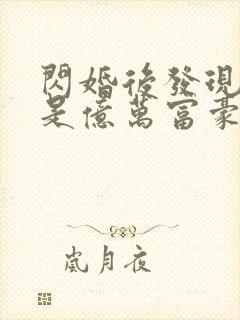 閃婚後發現
是億萬富豪
嵐月夜